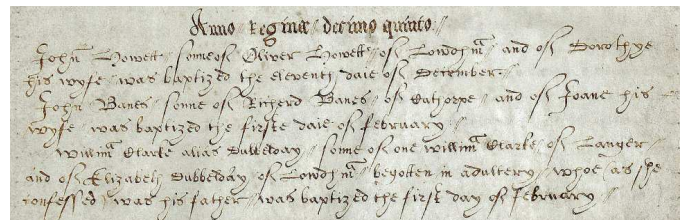 Anno Reginæ decimo quinto.
John Howett sonne of Oliver Howett of Lowdhm̃ and of Dorothye
his wyfe was baptized the eleventh daie of December.
John Banes sonne of Richerd Banes of Cathorpe and of Joane his
wyfe was baptized the firste daie of february
Willim̃ Clarke alias Dubbelday sonne of one willim̃ Clarke of Langer
and of Elizabeth Dubbelday of Lowdhm̃ begotten in adultery whoe (as she
confessed) was his father was baptized the first day of february